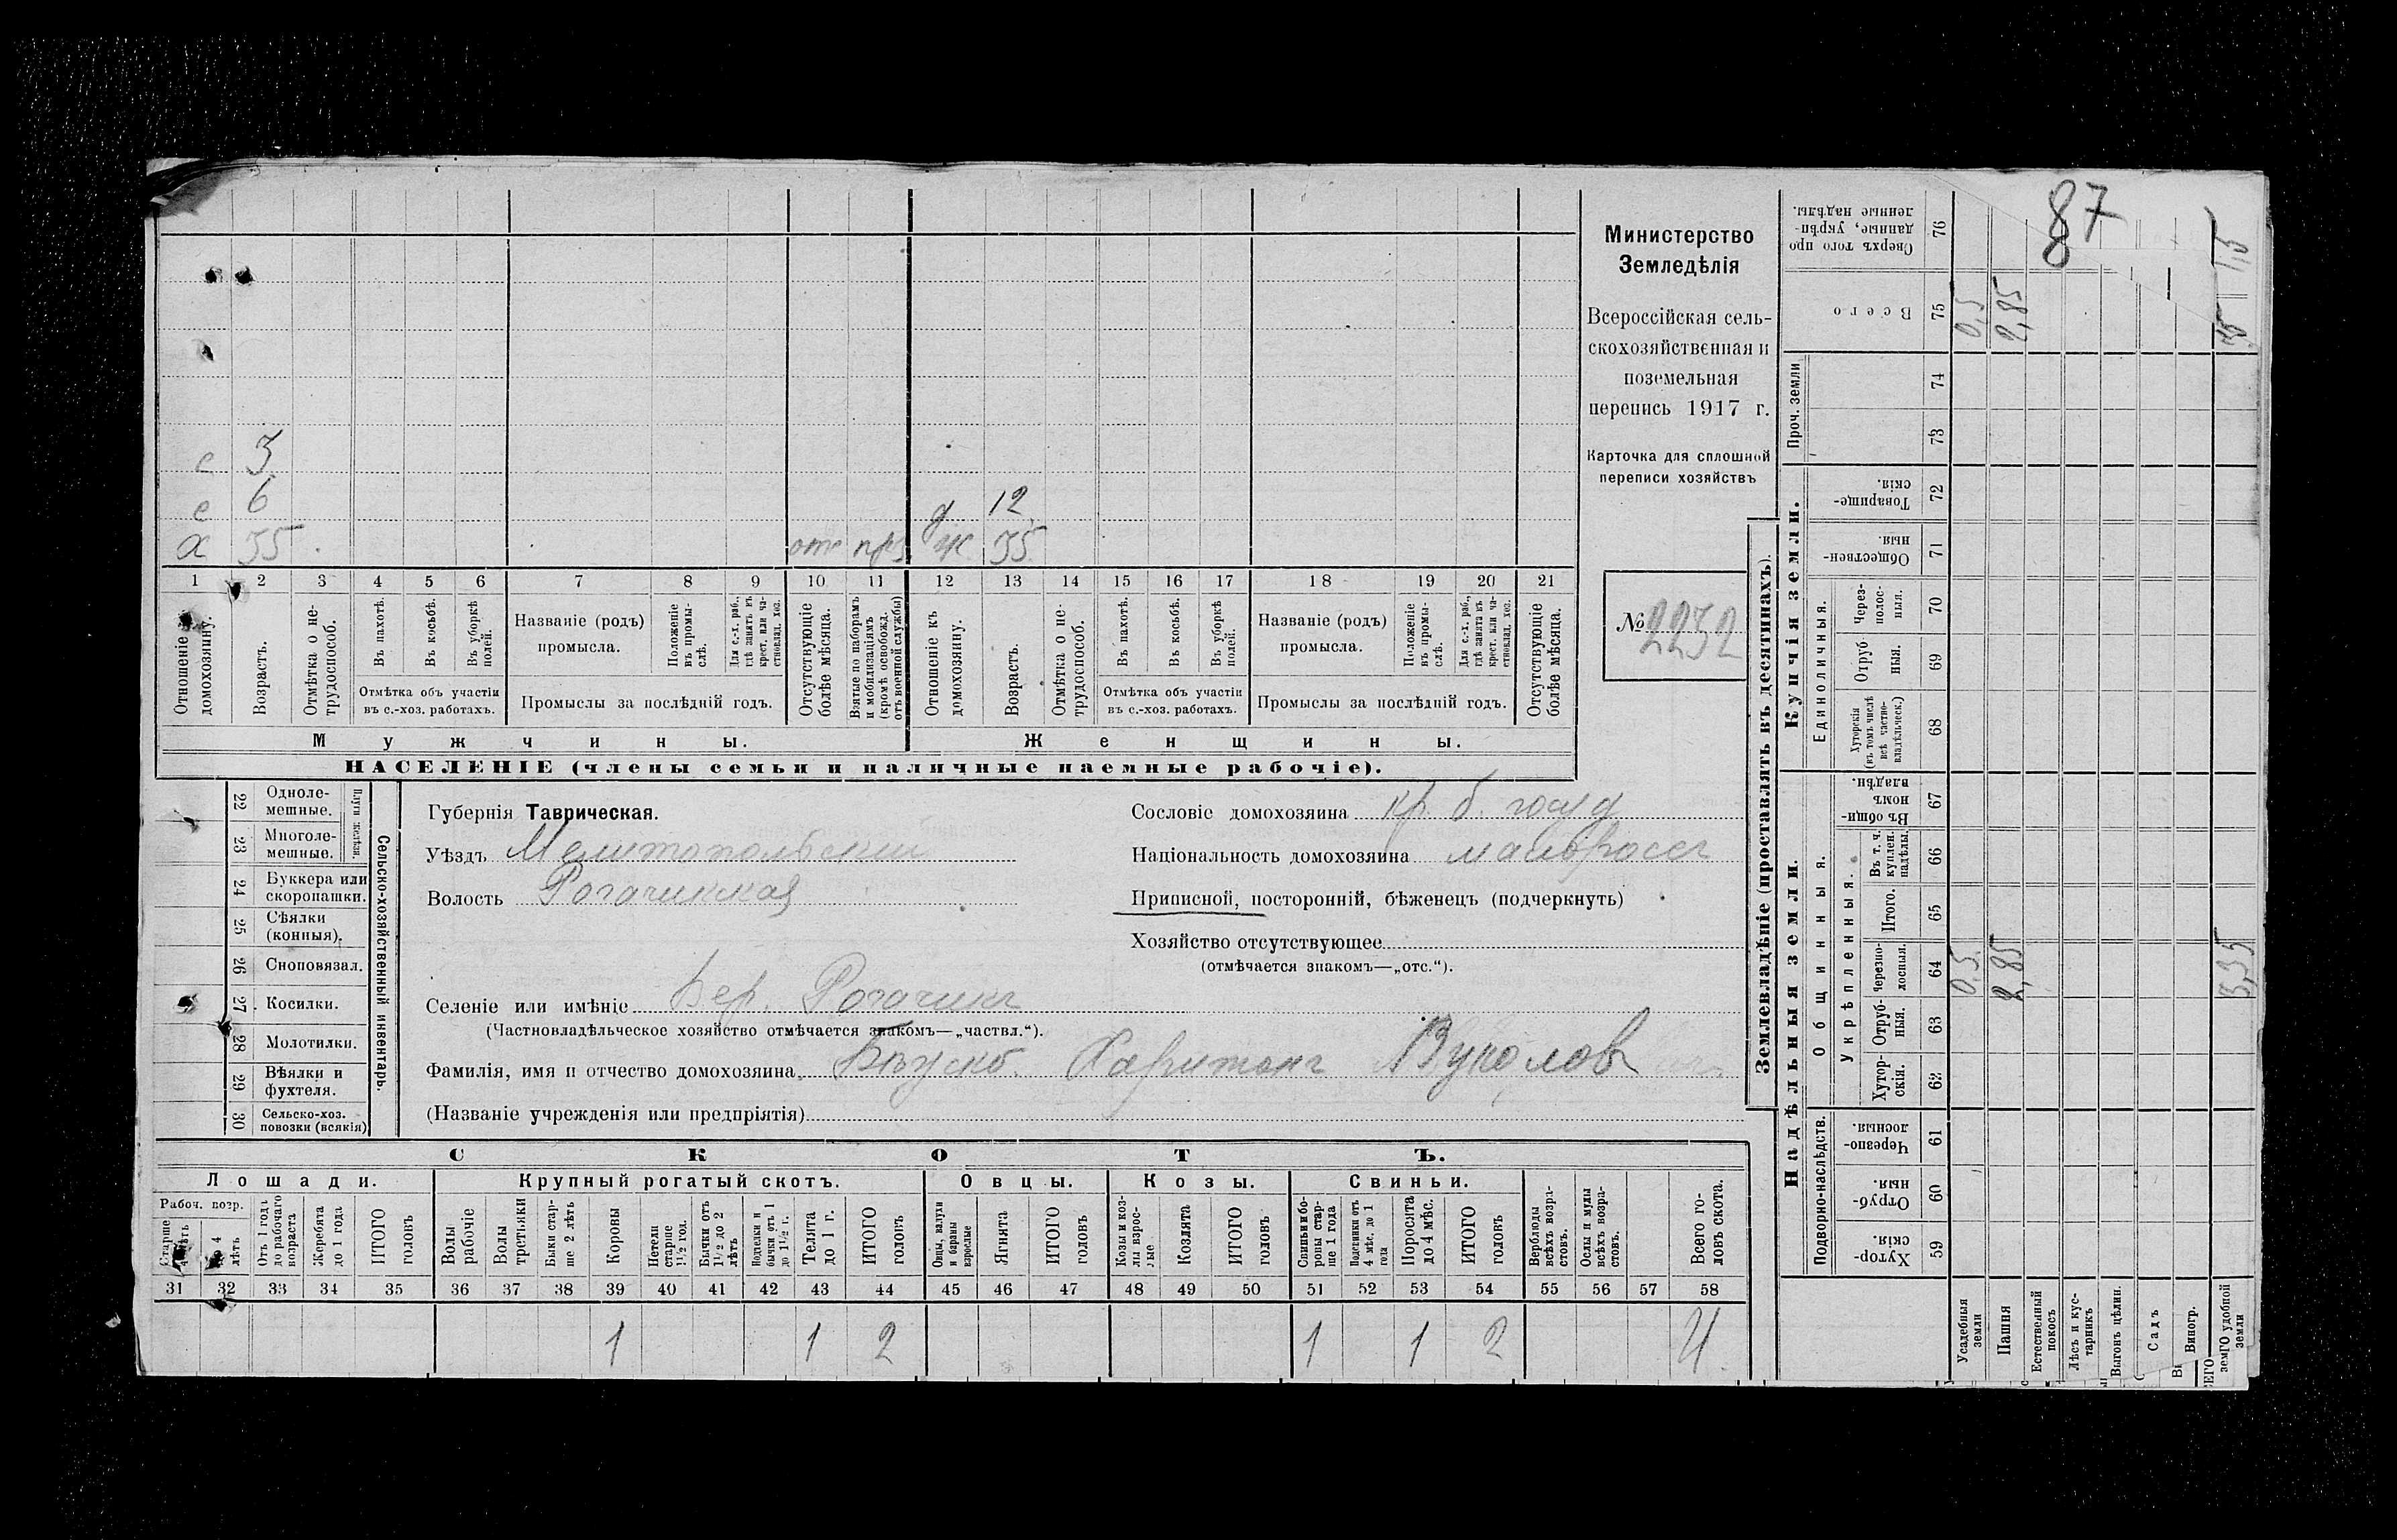 87
Министерство
Земледѣлія
Всероссійская сель-
скохозяйственная и
поземельная
перепись 1917 г.
Карточка для сплошной
переписи хозяйствъ
№ 2232
с 3
с 6
д 12
х 35 отс ж 35
1 2 3 4 5 6 7 8 9 10 11 12 13 14 15 16 17 18 19 20 21
Отношеніе къ домохозяину.
Возрастъ.
Отмѣтка о не-
трудоспособ.
Въ пахотѣ.
Въ косьбѣ.
Въ уборкѣ
полей.
Отмѣтка объ участіи
въ с.-хоз. работахъ.
Названіе (родъ)
промысла.
Положеніе
въ промы-
слѣ.
Для с.-х. раб.,
гдѣ занятъ въ
крест. или ча-
стновлад. хоз.
Промыслы за послѣдній годъ.
Отсутствующіе
болѣе мѣсяца.
Взятые по наборамъ
и мобилизаціямъ
(кромѣ освобожд.
отъ военной службы)
Отношеніе къ
домохозяину.
Возрастъ.
Отмѣтка о не-
трудоспособ.
Въ пахотѣ.
Въ косьбѣ.
Въ уборкѣ
полей.
Отмѣтка объ участіи
въ с.-хоз. работахъ.
Названіе (родъ)
промысла.
Положеніе
въ промы-
слѣ.
Для с.-х. раб.,
гдѣ занята въ
крест. или ча-
стновлад. хоз.
Промыслы за послѣдній годъ.
Отсутствующіе
болѣе мѣсяца.
Мужчины.
Женщины.
НАСЕЛЕНІЕ (члены семьи и наличные наемные рабочіе).
Сельско-хозяйственный инвентарь.
Плуги желѣзн.
22 Одноле-
мешные.
23 Многоле-
мешные.
24 Буккера или
скоропашки.
25 Сѣялки
(конныя).
26 Сноповязал.
27 Косилки.
28 Молотилки.
29 Вѣялки и
фухтеля.
30 Сельско-хоз.
повозки (всякія)
Губернія Таврическая.
Уѣздъ Мелитопольский
Волость Рогачикская
Селеніе или имѣніе Вер. Рогачикъ
(Частновладѣльческое хозяйство отмѣчается знакомъ—„частвл.“).
Фамилія, имя и отчество домохозяина Харитонъ Вуколов
(Названіе учрежденія или предпріятія)
Сословіе домохозяина кр. б. госуд
Національность домохозяина малоросс
Приписной, посторонній, бѣженецъ (подчеркнуть)
Хозяйство отсутствующее
(отмѣчается знакомъ—„отс.“).
СКОТЪ.
Лошади.
Крупный рогатый скотъ.
Овцы.
Козы.
Свиньи.
Рабоч. возр.
Старше
4 лѣтъ
До 4
лѣтъ
Отъ 1 года
до рабочаго
возраста
Жеребята
до 1 года
ИТОГО
головъ
Волы
рабочіе
Волы
третьяки
Быки стар-
ше 2 лѣтъ
Коровы
Нетели
старше
1½ год.
Бычки отъ
1½ до 2
лѣтъ
Подтелки и
бычки отъ 1
до 1½ г.
Телята
до 1 г.
ИТОГО
головъ
Овцы, валухи
и бараны
взрослые
Ягнята
ИТОГО
головъ
Козы и коз-
лы взрос-
лые
Козлята
ИТОГО
головъ
Свиньи и бо-
ровы стар-
ше 1 года
Подсвинки отъ
4 мѣс. до 1
года
Поросята
до 4 мѣс.
ИТОГО
головъ
Верблюды
всѣхъ возра-
стовъ.
Ослы и мулы
всѣхъ возра-
стовъ.
Всего го-
ловъ скота.
31 32 33 34 35 36 37 38 39 40 41 42 43 44 45 46 47 48 49 50 51 52 53 54 55 56 57 58
1 1 2 1 1 2 4
Землевладѣніе (проставлять въ десятинахъ).
Надѣльныя земли.
Купчія земли.
Подворно-наслѣдств.
Общинныя.
Укрѣпленныя.
Единоличныя.
Проч. земли
Сверхъ того про
данные, укрѣп-
ленные надѣлы. 76
Всего 75 0,5 2,85
74
73
Товарище-
скія. 72
Обществен-
ныя. 71
Через-
полос-
ныя. 70
Отруб
ныя. 69
Хуторскія
(въ томъ числѣ
всѣ частно-
владѣльческ.) 68
Въ общи-
номъ
владѣн. 67
Въ т. ч.
куплен.
надѣлы. 66
Итого. 65
Черезпо-
лосныя. 64 0,5 2,85 3,35
Отруб-
ныя. 63
Хутор-
скія. 62
Черезпо-
лосныя. 61
Отруб-
ныя. 60
Хутор-
скія. 59
Усадебныя
земли
Пашня
Естественный
покосъ
Лѣсъ и кус-
тарникъ
Выгонъ цѣлин.
Садъ
Виногр.
удобной
земли